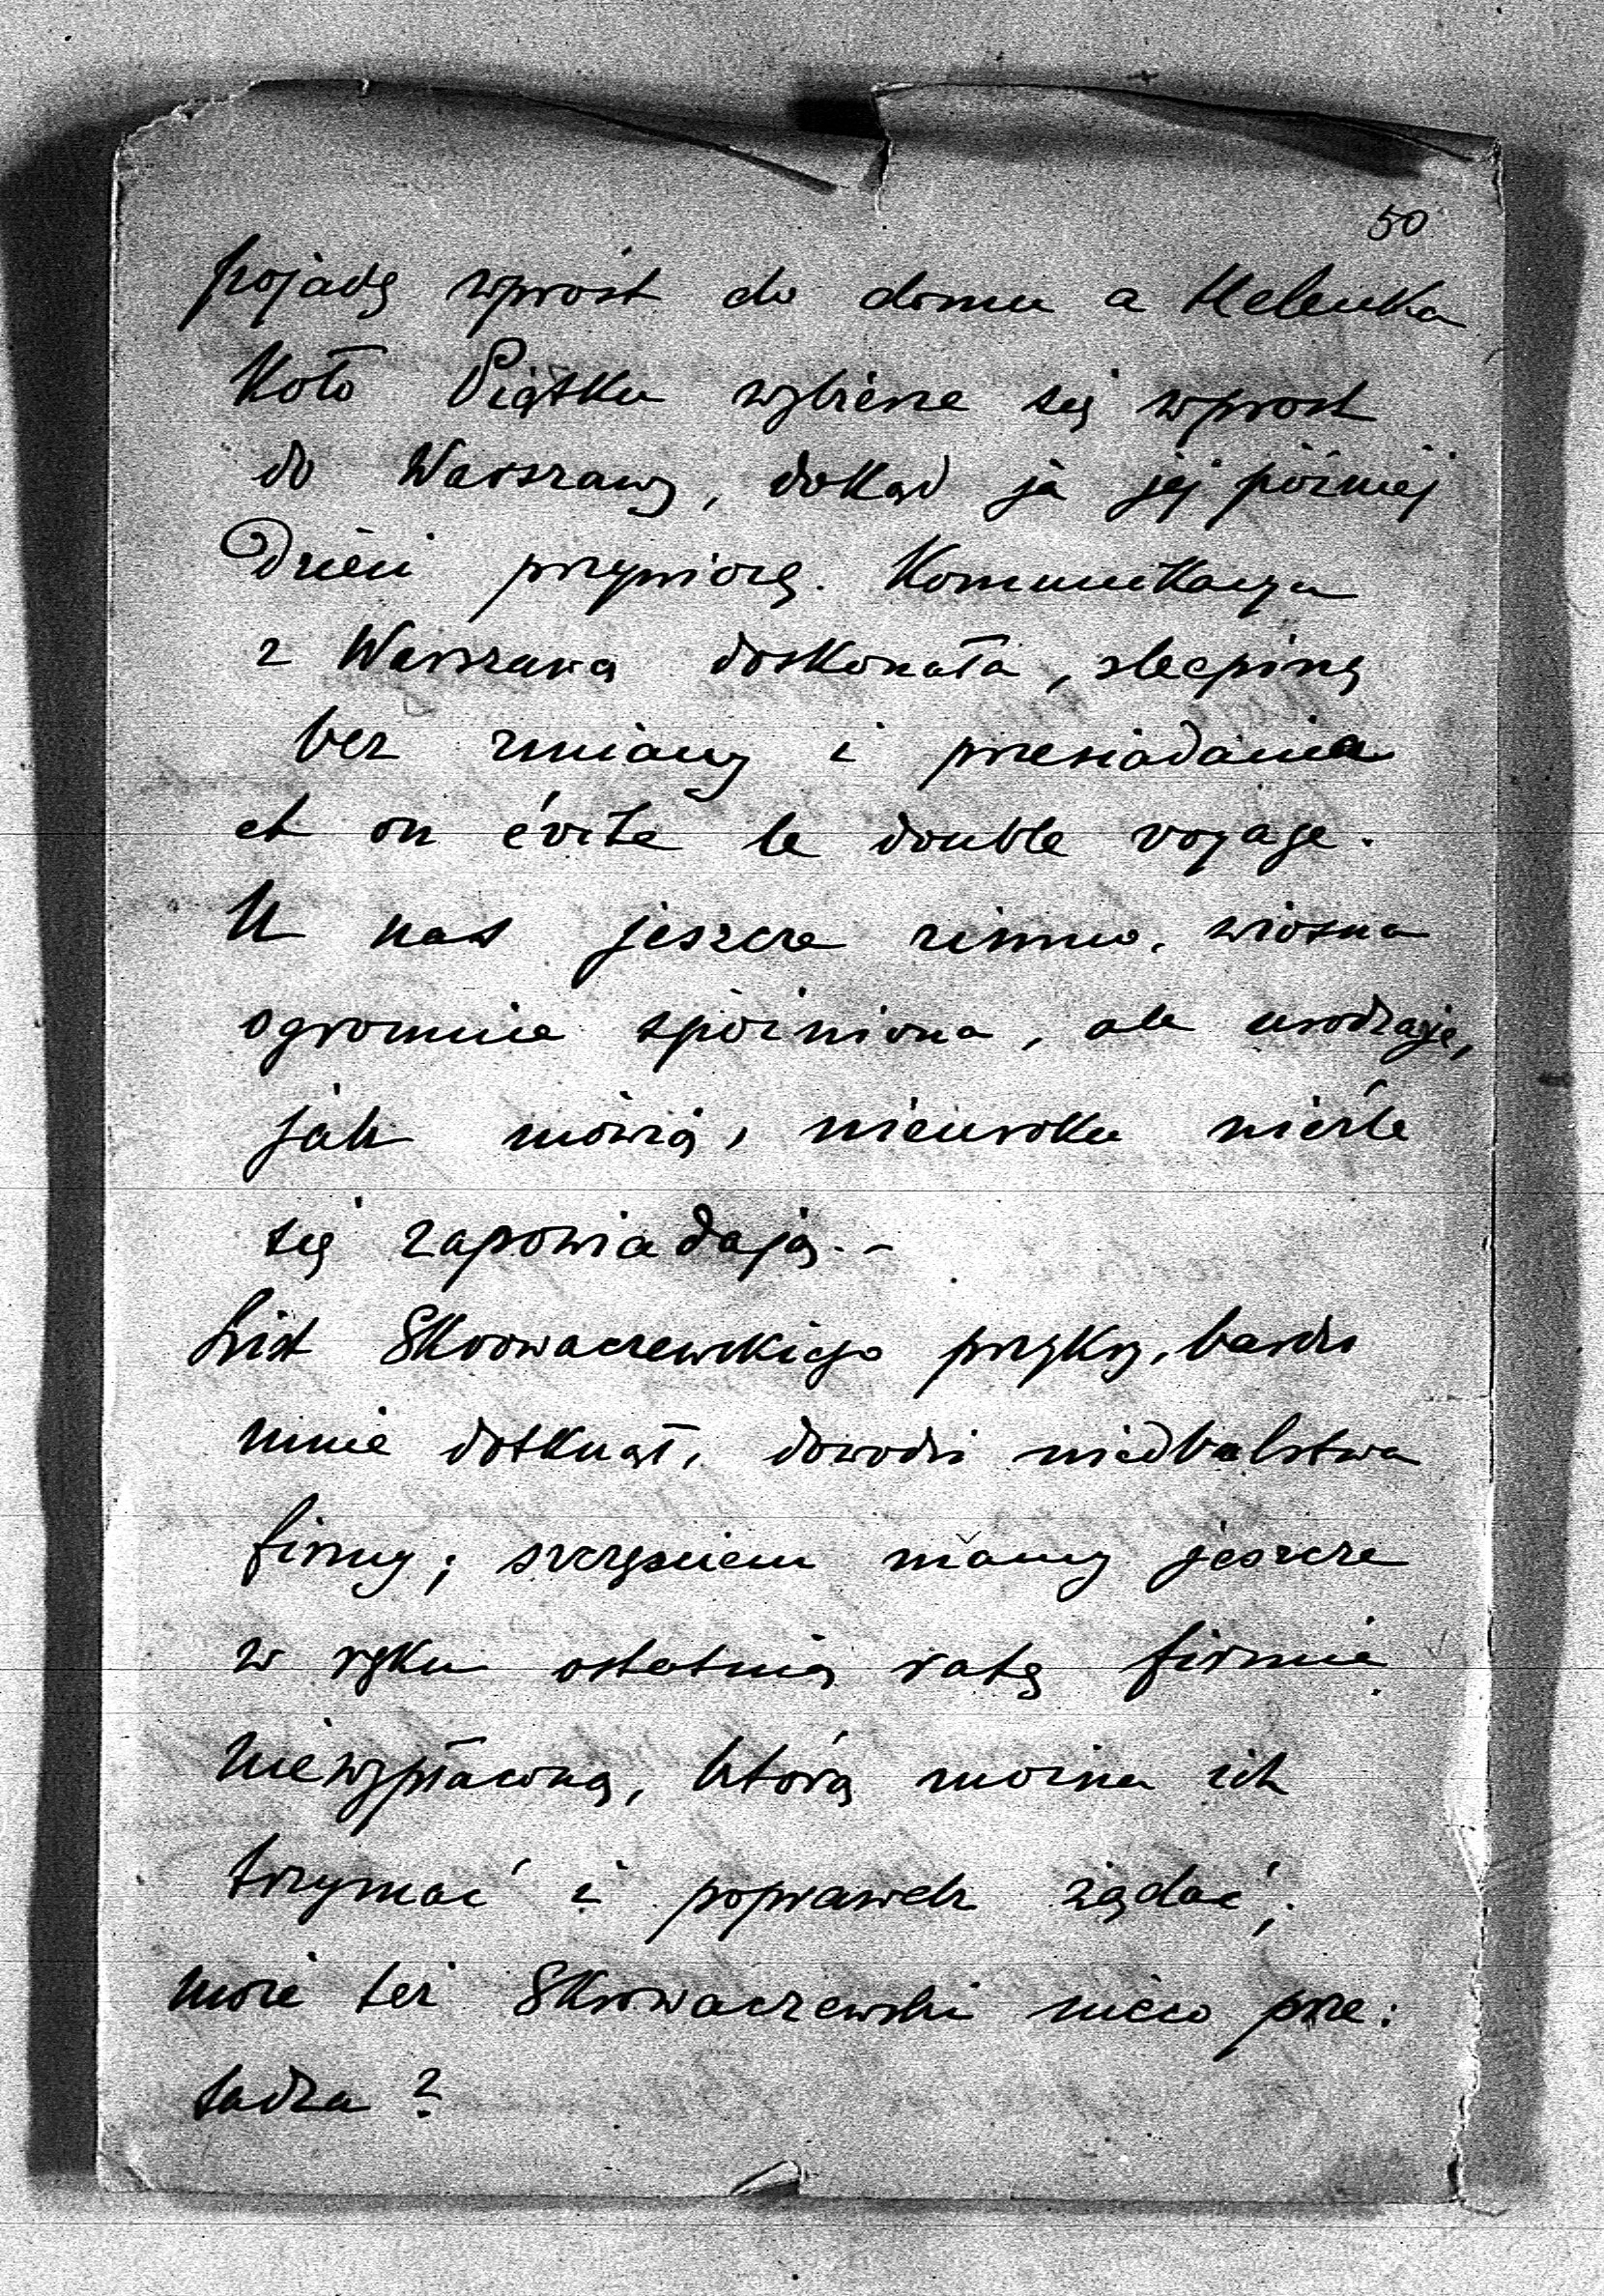 50
pojadę wprost do domu a Helenka
Koło Piątku wybierze się wprost
do Warszawy, dokąd ja jej później
Dzieci przywiozę. Komunikacya
z Warszawą doskonała, sleeping
bez zmiany i przesiadania
et on évite le double voyage.
U nas jeszcze zimno, wiosna
ogromnie spóźniona, ale urodzaje,
jak mówią, nieuroku nieźle
się zapowiadają. -
List Skrowaczewskiego przykry, bardzo
mnie dotknął, dowodzi niedbalstwa
firmy; szczęściem mamy jeszcze
w ręku ostatnią ratę firmie
niewypłaconą, którą można ich
trzymać i poprawek żądać;
może też Skrowaczewski nieco prze:
sadza?